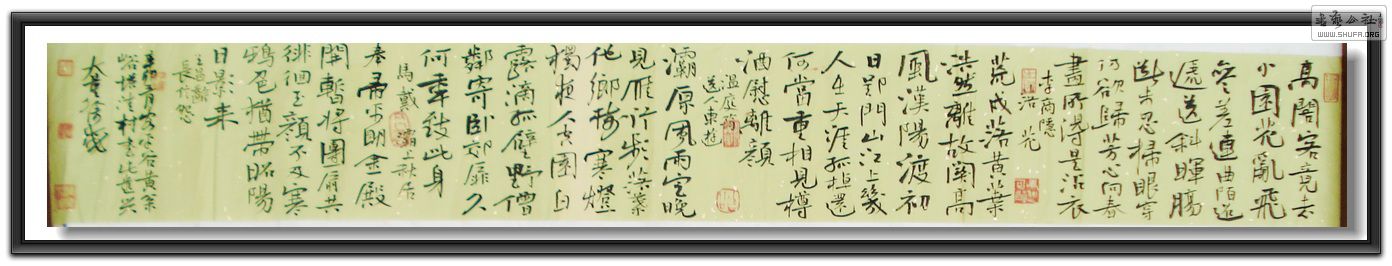 高閣客竟去
小園花亂飛
參差連曲陌迢
遞送斜暉腸
斷未忍掃眼穿
仍欲歸芳心向春
盡所得是沾衣
李商隱
落花
荒戍落黃葉
浩然離故關高
風漢陽渡初
日郢門山江上幾
人在天涯孤棹還
何當重相見樽
酒慰離顏
溫庭筠
送人東遊
灞原風雨定晚
見雁行頻落葉
他鄉樹寒燈
獨夜人空園白
露滴孤壁野僧
鄰寄臥郊扉久
何年致此身
馬戴 灞上秋居
奉帚平明金殿
開暫將團扇共
徘徊玉顏不及寒
鴉色猶帶昭陽
日影來
王昌齡
長信怨
書藝公社
WWW.SHUFA.ORG